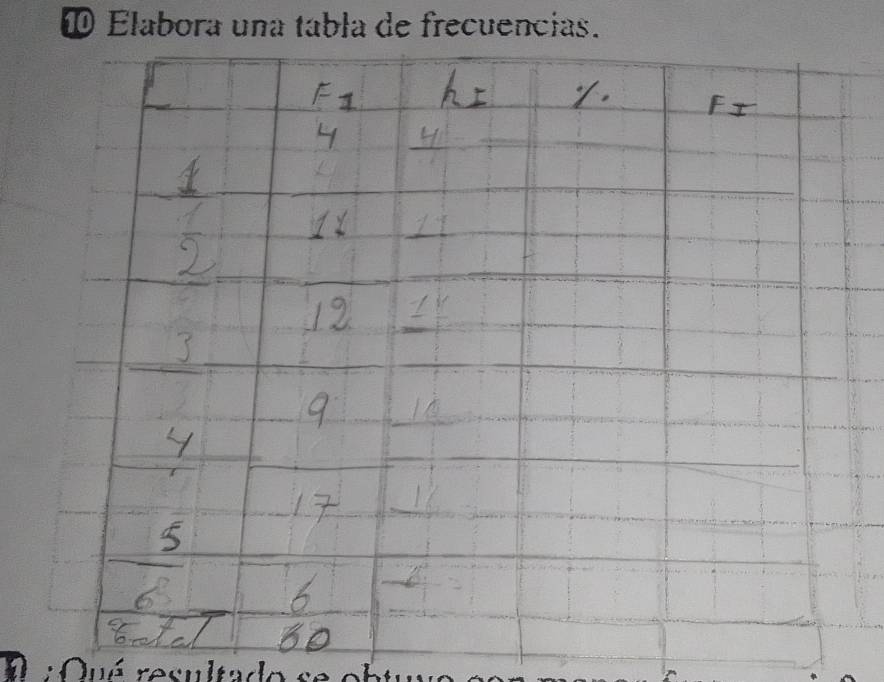 10 Elabora una tabla de frecuencias.
FI hI %. FI
4 4
1
11 11
2
12
3
9
4
17
5
6 6
total 60
¿Qué resultado se obtuvo con